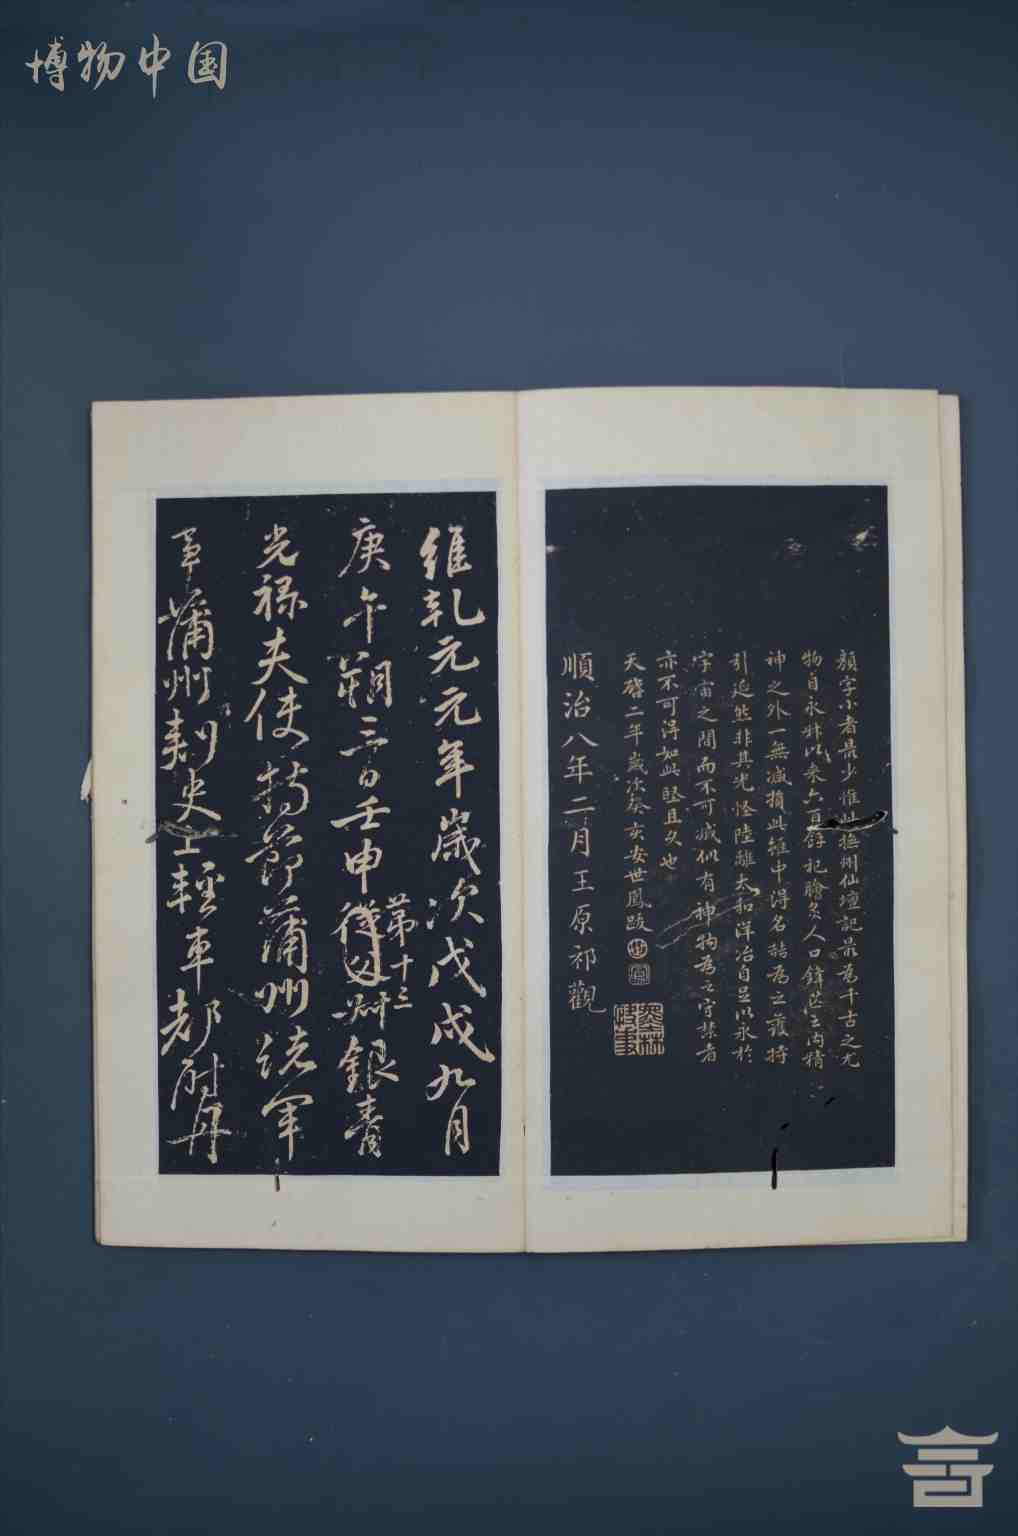 博物中国
顏字小者最少惟此撫州仙壇記最爲千古之尤
物自永叔以來六百餘祀膾炙人口鋒芒之内精
神之外一無減損此雖中得名喆爲之護持
引近然非其光怪陸離太和洋洽自足以永於
宇宙之間而不可滅似有神物爲之守禁者
亦不可得如此堅且久也
天啓二年歲次癸亥安世鳳跋
墨林
順治八年二月王原祁觀
維乾元元年歲次戊戌九月
庚午朔三日壬申第十三叔銀青
光祿夫使持節蒲州諸軍
事蒲州刺史上輕車都尉丹